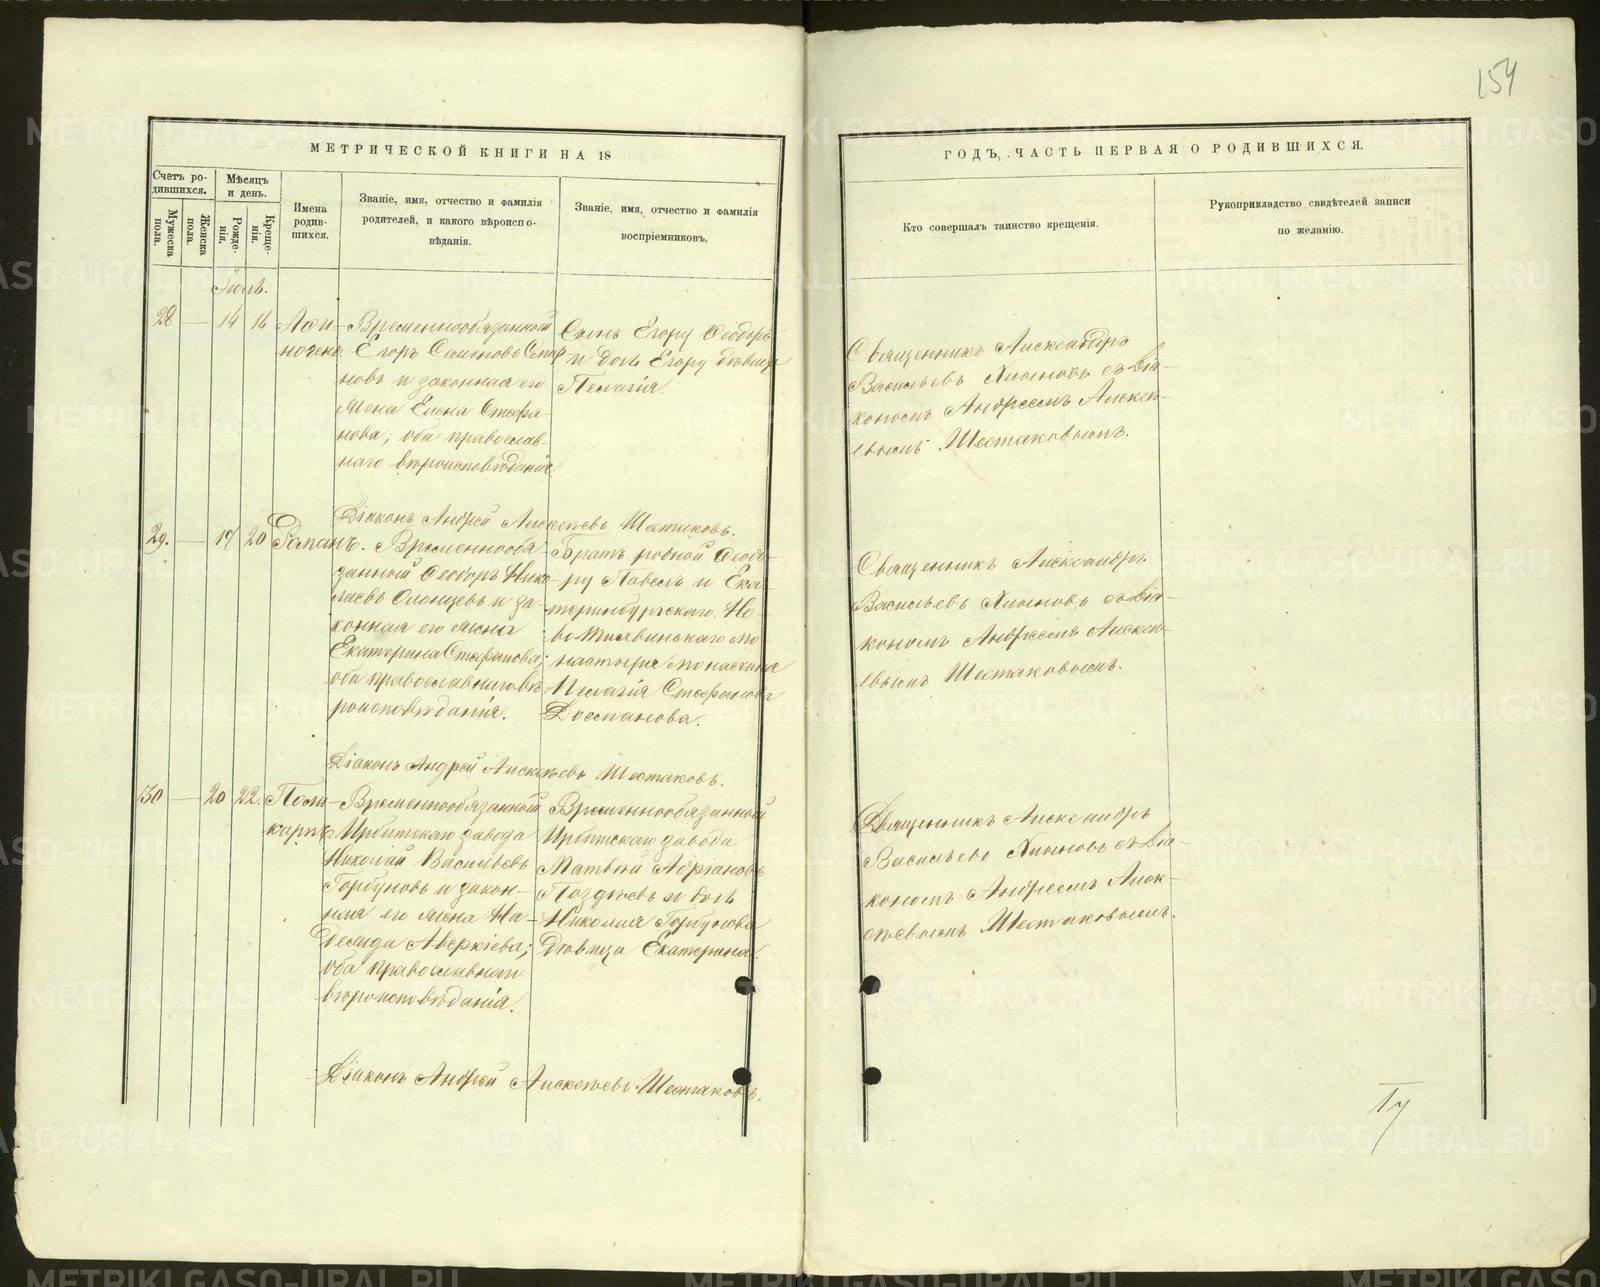 154
МЕТРИЧЕСКОЙ КНИГИ НА 18
ГОДЪ, ЧАСТЬ ПЕРВАЯ О РОДИВШИХСЯ.
Счетъ ро-
дившихся.
Мѣсяцъ
и день.
Мужеска
пола.
Женска
пола.
Рожде-
нія.
Креще-
нія.
Имена
родив-
шихся.
Званіе, имя, отчество и фамилія
родителей, и какого вѣроиспо-
вѣданія.
Званіе, имя, отчество и фамилія
воспріемниковъ.
Кто совершалъ таинство крещенія.
Рукоприкладство свидѣтелей записи
по желанію.
Іюль.
28 — 14 16
Временнообязанной
Егоръ Семеновъ
новъ и законная его
жена Елена Стефа-
нова; оба православ-
наго вѣроисповѣданія
Сынъ Егору Ѳеодоръ
и дочь Егору дѣвица
Пелагія.
Священникъ Александръ
Васильевъ съ Діа-
кономъ Андреемъ Алексѣ-
евымъ Шестаковымъ.
Діаконъ Андрей Алексѣевъ Шестаковъ.
29. — 17 20 Романъ.
Временнообя-
занной Ѳеодоръ Нико-
лаевъ и за-
конная его жена
Екатерина Стефанова;
оба православнаго вѣ-
роисповѣданія.
Братъ родной Ѳеодо-
ру Павелъ и Ека-
теринбургскаго Но-
во Тихвинскаго мо-
настыря монахиня
Пелагія Стефанова
Священникъ Александръ
Васильевъ съ Діа-
кономъ Андреемъ Алексѣ-
евымъ Шестаковымъ.
Діаконъ Андрей Алексѣевъ Шестаковъ.
30 — 20 22. Поли-
карпъ.
Временнообязанной
Ирбитскаго завода
Николай Васильевъ
Горбуновъ и закон-
ная его жена На-
дежда Аверкіева;
оба православнаго
вѣроисповѣданія.
Временнообязанной
Ирбитскаго завода
Матвѣй Адріановъ
Поздѣевъ и дочь
Николая Горбунова
Дѣвица Екатерина.
Священникъ Александръ
Васильевъ съ Діа-
кономъ Андреемъ Алек-
сѣевымъ Шестаковымъ.
Діаконъ Андрей Алексѣевъ Шестаковъ.